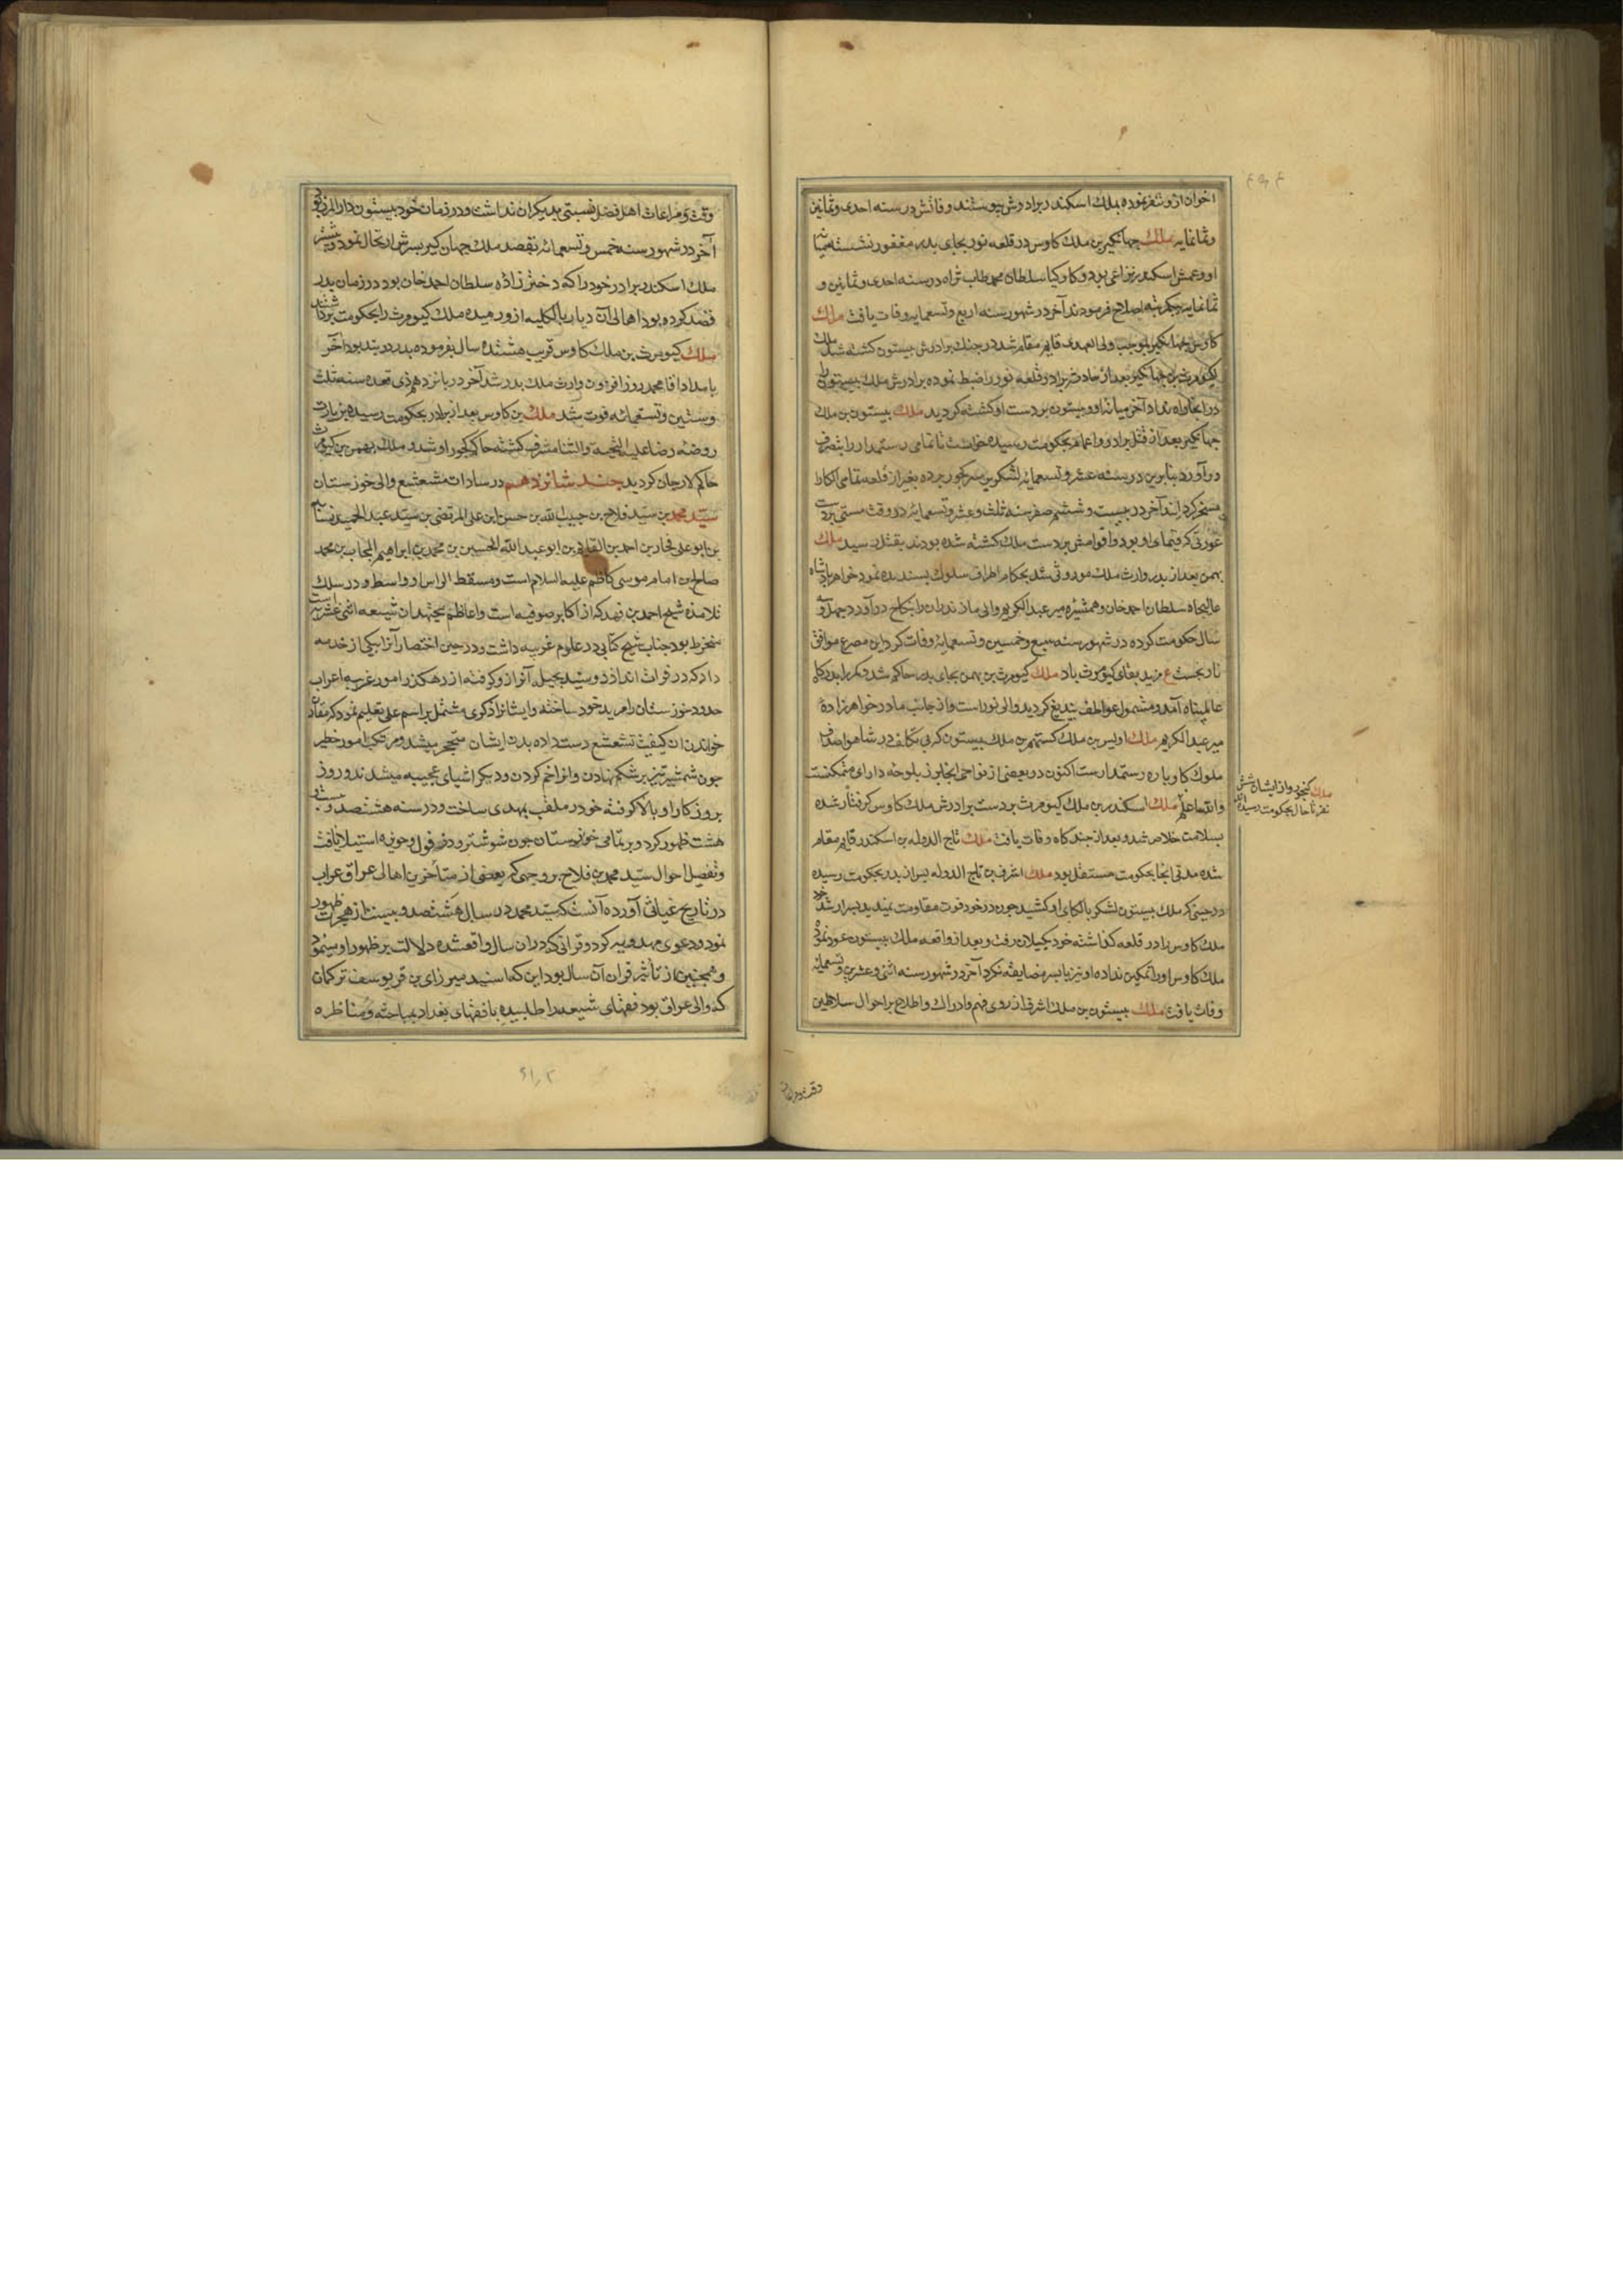 اخوان ازو تنفر نموده بملك اسكندر برادرش پیوستند وفاتش در سنه احدی و ثمانین
و ثمانمایه ملك جهانكیر بن ملك كاوس در قلعه نور بجای پدر مغفور نشسته میانه
او و عمش اسكندر نزاعی بود و كاركیا سلطان محمد طاب ثراه در سنه احدی و ثمانین و
ثمانمایه اصلاح فرمودند آخر در شهور سنه اربع و تسعمایه وفات یافت ملك
كاوس بن جهانكیر بموجب ولی العهدی قایم مقام شد در جنك برادرش بیستون كشته شد ملك
كیومرث بن جهانكیر بعد از حادثه برادر قلعه نور را ضبط نموده برادرش ملك بیستون را
در انجا راه نداد آخر میانه او و بیستون بر دست او كشته كردید ملك بیستون بن ملك
جهانكیر بعد از قتل برادر و اعمام بحكومت رسیده خواست تا تمامی رستمدار را بتصرف
در آورد بنابرین در سنه عشر و تسعمایه لشكر بر سر كجور برده بغیر از قلعه تمامی الكا را
مسخر كردانید آخر در بیست و ششم صفر سنه ثلث و عشر و تسعمایه در وقت مستی بر دست
عورتی كه قیمای او بود و اقوامش بر دست ملك كشته شده بودند بقتل رسید ملك
بهمن بعد از پدر وارث ملك موروثی شد بحكام اطراف سلوك پسندیده نمود خواهر پادشاه
عالیجاه سلطان احمد خان و همشیره میر عبد الكریم والی مازندران را بنكاح در آورد چهل و
سال حكومت كرده در شهور سنه سبع و خمسین و تسعمایه وفات كرد این مصرع موافق
تاریخست ع مزید بقای كیومرث باد ملك كیومرث بن بهمن بجای پدر حاكم شد و مكررا بدركاه
عالمپناه آمد و مشمول عواطف بیدریغ كردید والی نور است و از جانب مادر خواهرزاده
میر عبد الكریم ملك اویس بن ملك كستهم بن ملك بیستون كه بی تكلف در شاهوار صدف
ملوك كاوباره رستمدارست اكنون در بعضی از نواحی انجا بر لوحه دارای متمكنست
والله اعلم ملك اسكندر بن ملك كیومرث بر دست برادرش ملك كاوس كرفتار شده
بسلامت خلاص شد و بعد از چند كاه وفات یافت ملك تاج الدوله بن اسكندر قایم مقام
شده مدتی انجا بحكومت مستقل بود ملك اشرف بن تاج الدوله پس از پدر بحكومت رسیده
در حینی كه ملك بیستون لشكر بالكای او كشید چون در خود قوت مقاومت ندید پسر ارشد خود
ملك كاوس را در قلعه كذاشته خود بكیلان رفت و بعد از واقعه ملك بیستون عود نموده
ملك كاوس او را تمكین نداده او نیز با پسر مضایقه نكرد آخر در شهور سنه اثنی و عشرین و تسعمایه
وفات یافت ملك بیستون بن ملك اشرف از روی فهم و ادراك و اطلاع بر احوال سلاطین
ملك كجور و از ایشان شش
نفر تا حال بحكومت رسیده اند
وقت و مراعات اهل فضل نسبتی بدیكران نداشت و در زمان خود بیستون دار المرز بود
آخر در شهور سنه خمس و تسعمائه بقصد ملك جهانكیر پسرش ارتحال نمود و پیشتر
ملك اسكندر برادر خود را كه دختر زاده سلطان احمد خان بود در زمان پدر
قصد كرده بود اهالی آن دیار بالكلیه ازو رمیده ملك كیومرث را بحكومت برداشتند
ملك كیومرث بن ملك كاوس قریب هشتده سال بفرموده پدر در بند بود آخر
بامداد اقا محمد روز افزون وارث ملك پدر شد آخر در پانزدهم ذی قعده سنه ثلث
و ستین و تسعمائه فوت شد ملك بن كاوس بعد از برادر بحكومت رسیده بزیارت
روضه رضا علیه التحیه و الثنا مشرف كشته حاكم كجور او شد و ملك بهمن بن كیومرث
حاكم لارجان كردید چند شانزدهم در سادات مشعشع والی خوزستان
سید محمد بن سید فلاح بن حبیب الله بن حسن ابن علی المرتضی بن سید عبد الحمید نسابه
بن ابو علی فخار بن احمد بن القایم بن ابو عبد الله الحسین بن محمد بن ابراهیم المجاب بن محمد
صالح بن امام موسی كاظم علیه السلام است و مسقط الراس او واسط و در سلك
تلامذه شیخ احمد بن فهد كه از اكابر صوفیه است و اعاظم مجتهدان شیعه اثنی عشریه است
منخرط بود جناب شیخ كتابی در علوم غریبه داشت و در حین احتضار آنرا بیكی از خدمه
داد كه در فرات اندازد و سید بحیله آنرا ازو كرفته از رهكذر امور غریبه اعراب
حدود خوزستان را مرید خود ساخته و ایشانرا ذكری مشتمل بر اسم علی تعلیم نمود كه مقارن
خواندن ان كیفیت تشعشع دست داده بدن ایشان متحجر میشد و مرتكب امور خطیر
چون شمشیر تیز بر شكم نهادن و انرا خم كردن و دیكر اشیای عجیبه میشدند و روز
بروز كار او بالا كرفته خود را ملقب بمهدی ساخت و در سنه هشتصد و بیست و
هشت ظهور كرد و بر تمامی خوزستان چون شوشتر و دزفول و حویزه استیلا یافت
و تفصیل احوال سید محمد بن فلاح بر وجهی كه بعضی از متأخرین اهالی عراق عراب
در تاریخ غیاثی آورده آنست كه سید محمد در سال هشتصد و بیست از هجرت ظهور
نمود و دعوی مهدویه كرد و قرانی كه در ان سال واقع شده دلالت بر ظهور او مینمود
و همچنین از تأثیر قران آن سال بود این كه اسپند میرزای بن قر یوسف تركمان
كه والی عراق بود فقهای شیعه را طلبیده با فقهای بغداد بمباحثه و مناظره